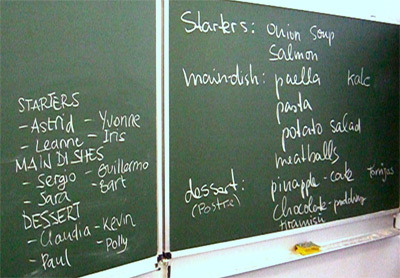 STARTERS
- Astrid - Yvonne
- Leanne - Iris
MAIN DISHES
- Sergio - Guillermo
- Sara - Bart
DESSERT
- Claudia - Kevin
- Paul - Polly
Starters: onion soup
Salmon
maindish: paella kale
pasta
potato salad
meatballs
dessert: pinapple - cake
(Postre) Chocolate-pudding
tiramisu